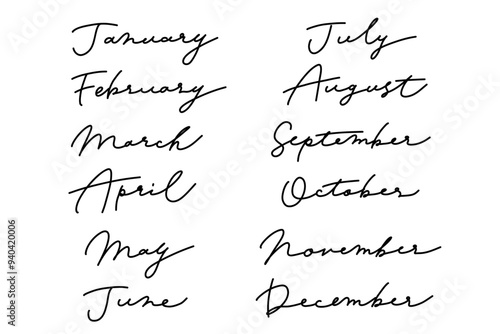 January
February
March
April
May
June
July
August
September
October
November
December
Adobe Stock | #940420006